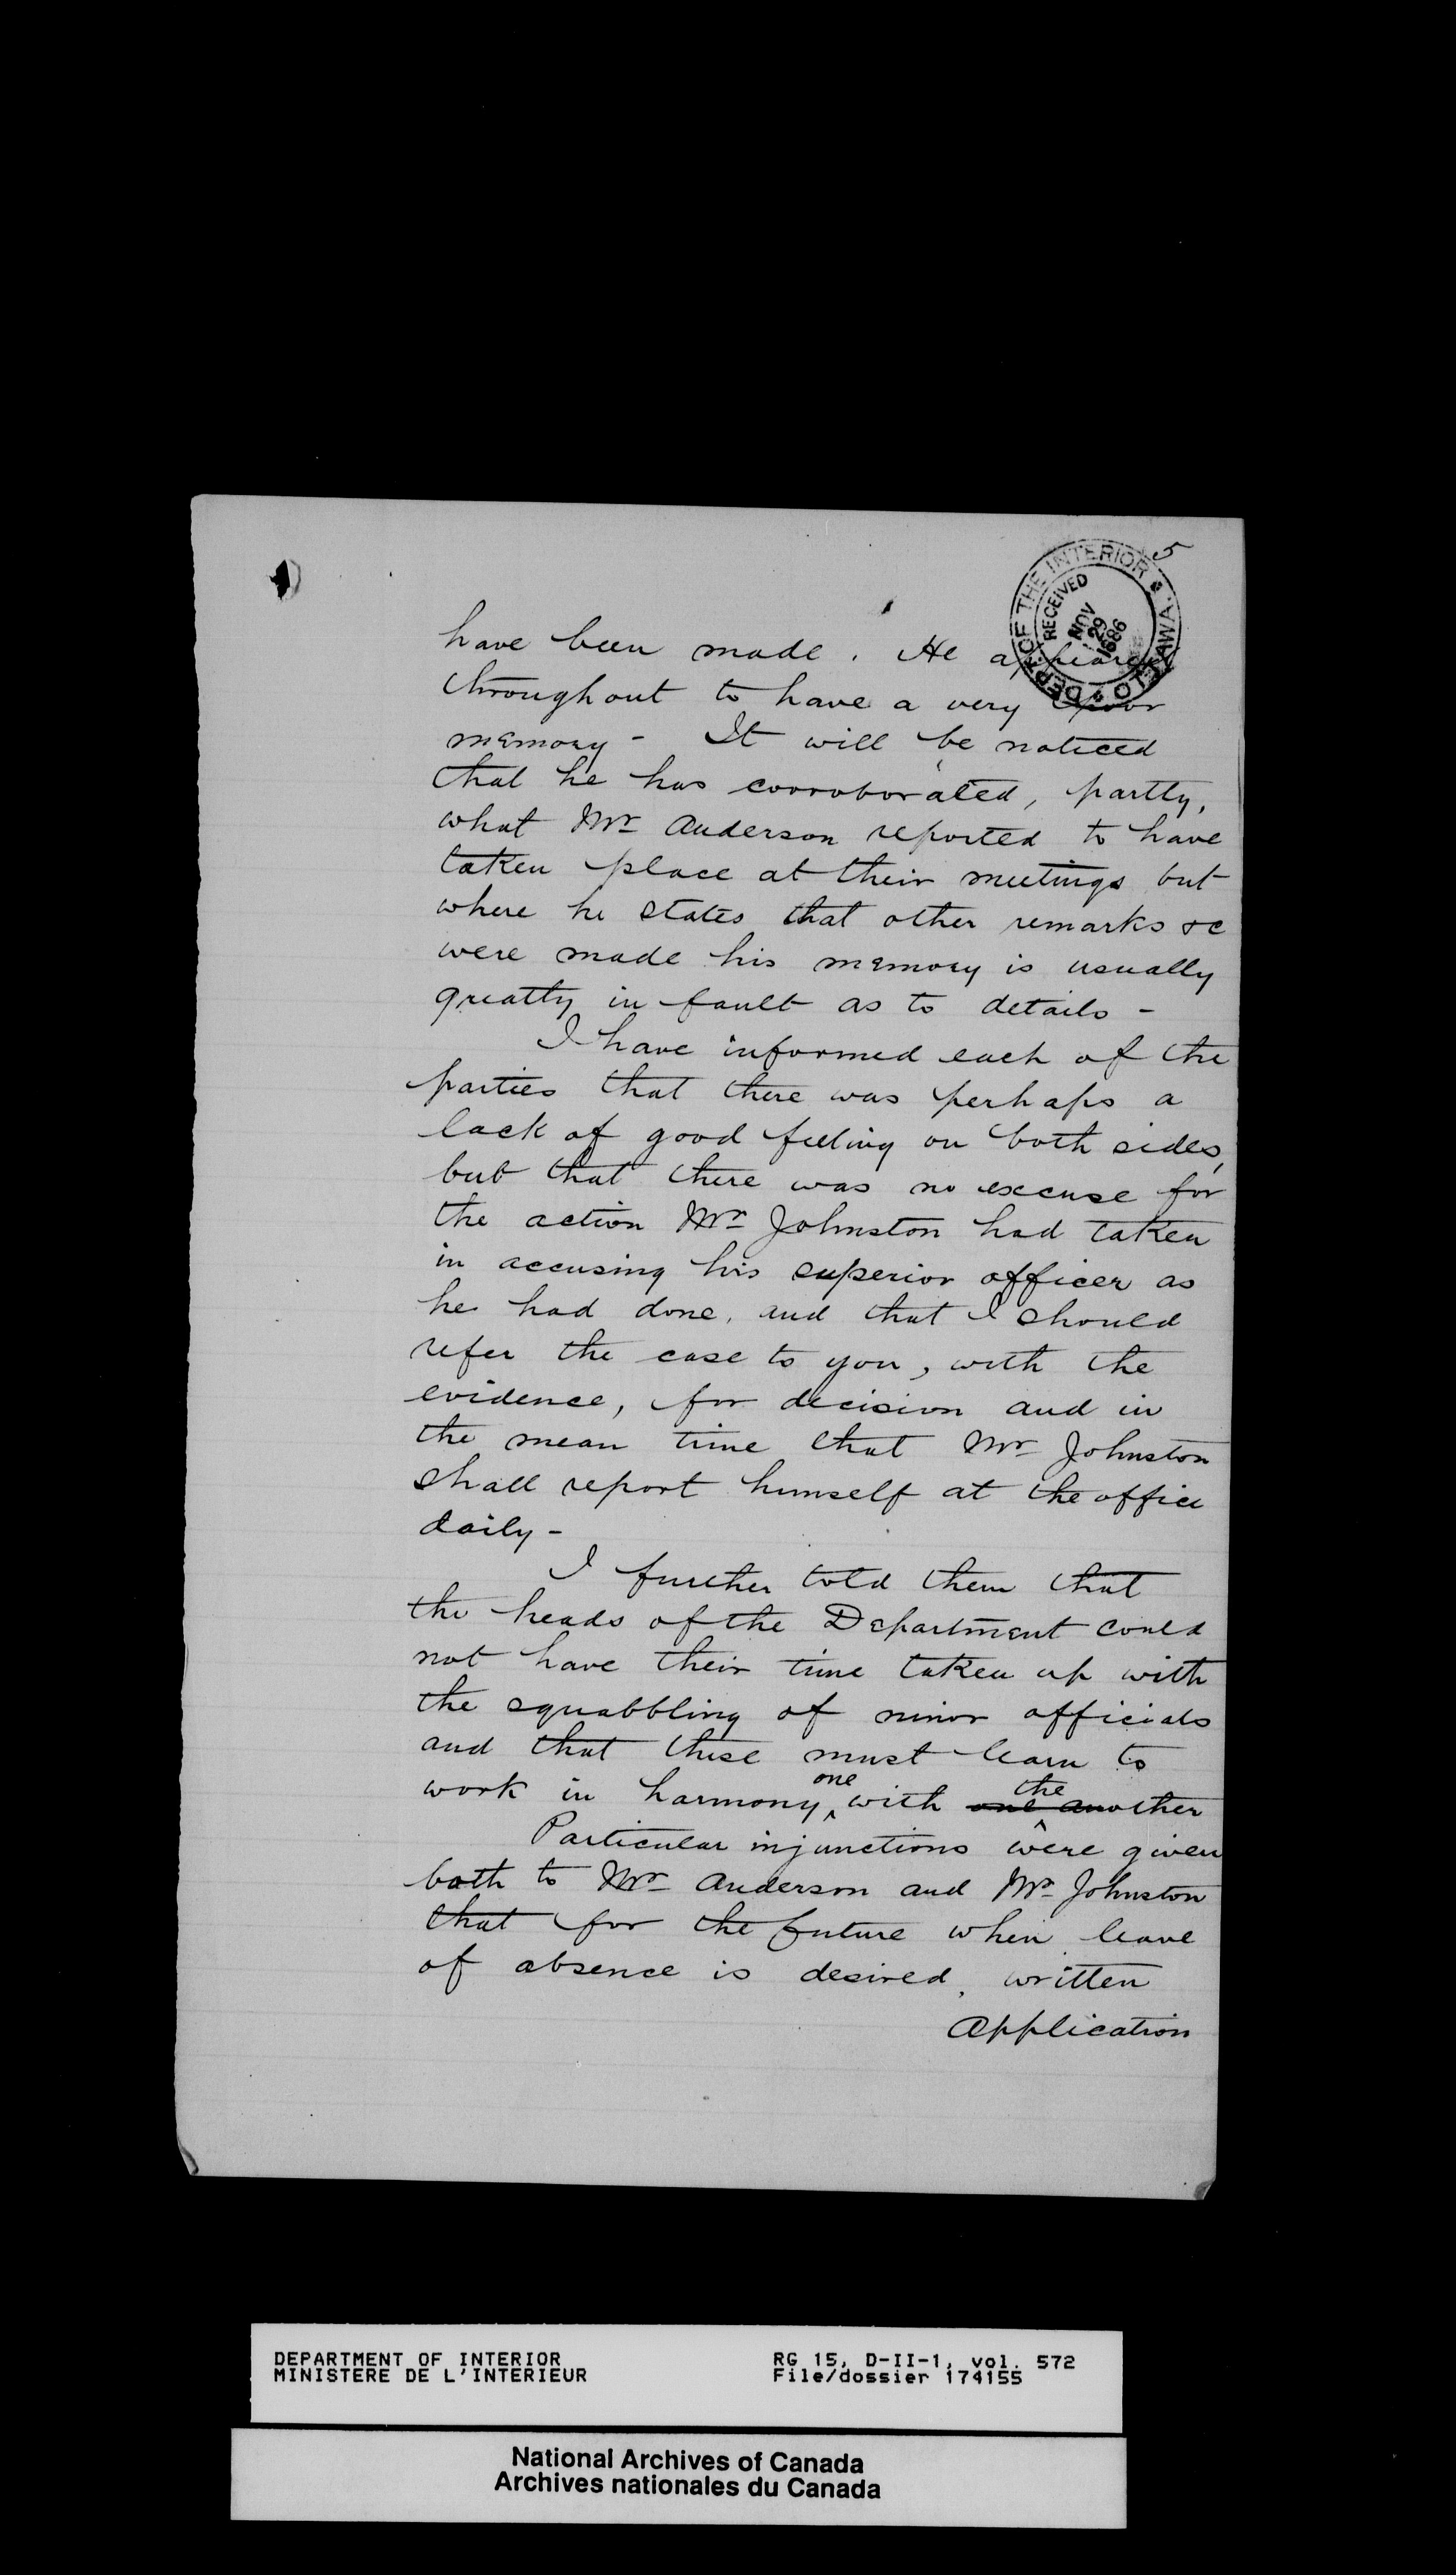 5
DEPT. OF THE INTERIOR OTTAWA
RECEIVED
NOV
29
1886
have been made. He appeared
throughout to have a very poor
memory - It will be noticed
that he has corroborated, partly,
what Mr Anderson reported to have
taken place at their meetings but
where he states that other remarks &c
were made his memory is usually
greatly in fault as to details -
I have informed each of the
parties that there was perhaps a
lack of good feeling on both sides,
but that there was no excuse for
the action Mr Johnston had taken
in accusing his superior officer as
he had done, and that I should
refer the case to you, with the
evidence, for decision and in
the mean time that Mr Johnston
shall report himself at the office
daily -
I further told them that
the heads of the Department could
not have their time taken up with
the squabbling of minor officials
and that these must learn to
work in harmony one with one another the
Particular injunctions were given
both to Mr Anderson and Mr Johnston
that for the future when leave
of absence is desired, written
Application
DEPARTMENT OF INTERIOR
MINISTERE DE L'INTERIEUR
RG 15, D-II-1, vol. 572
File/dossier 174155
National Archives of Canada
Archives nationales du Canada